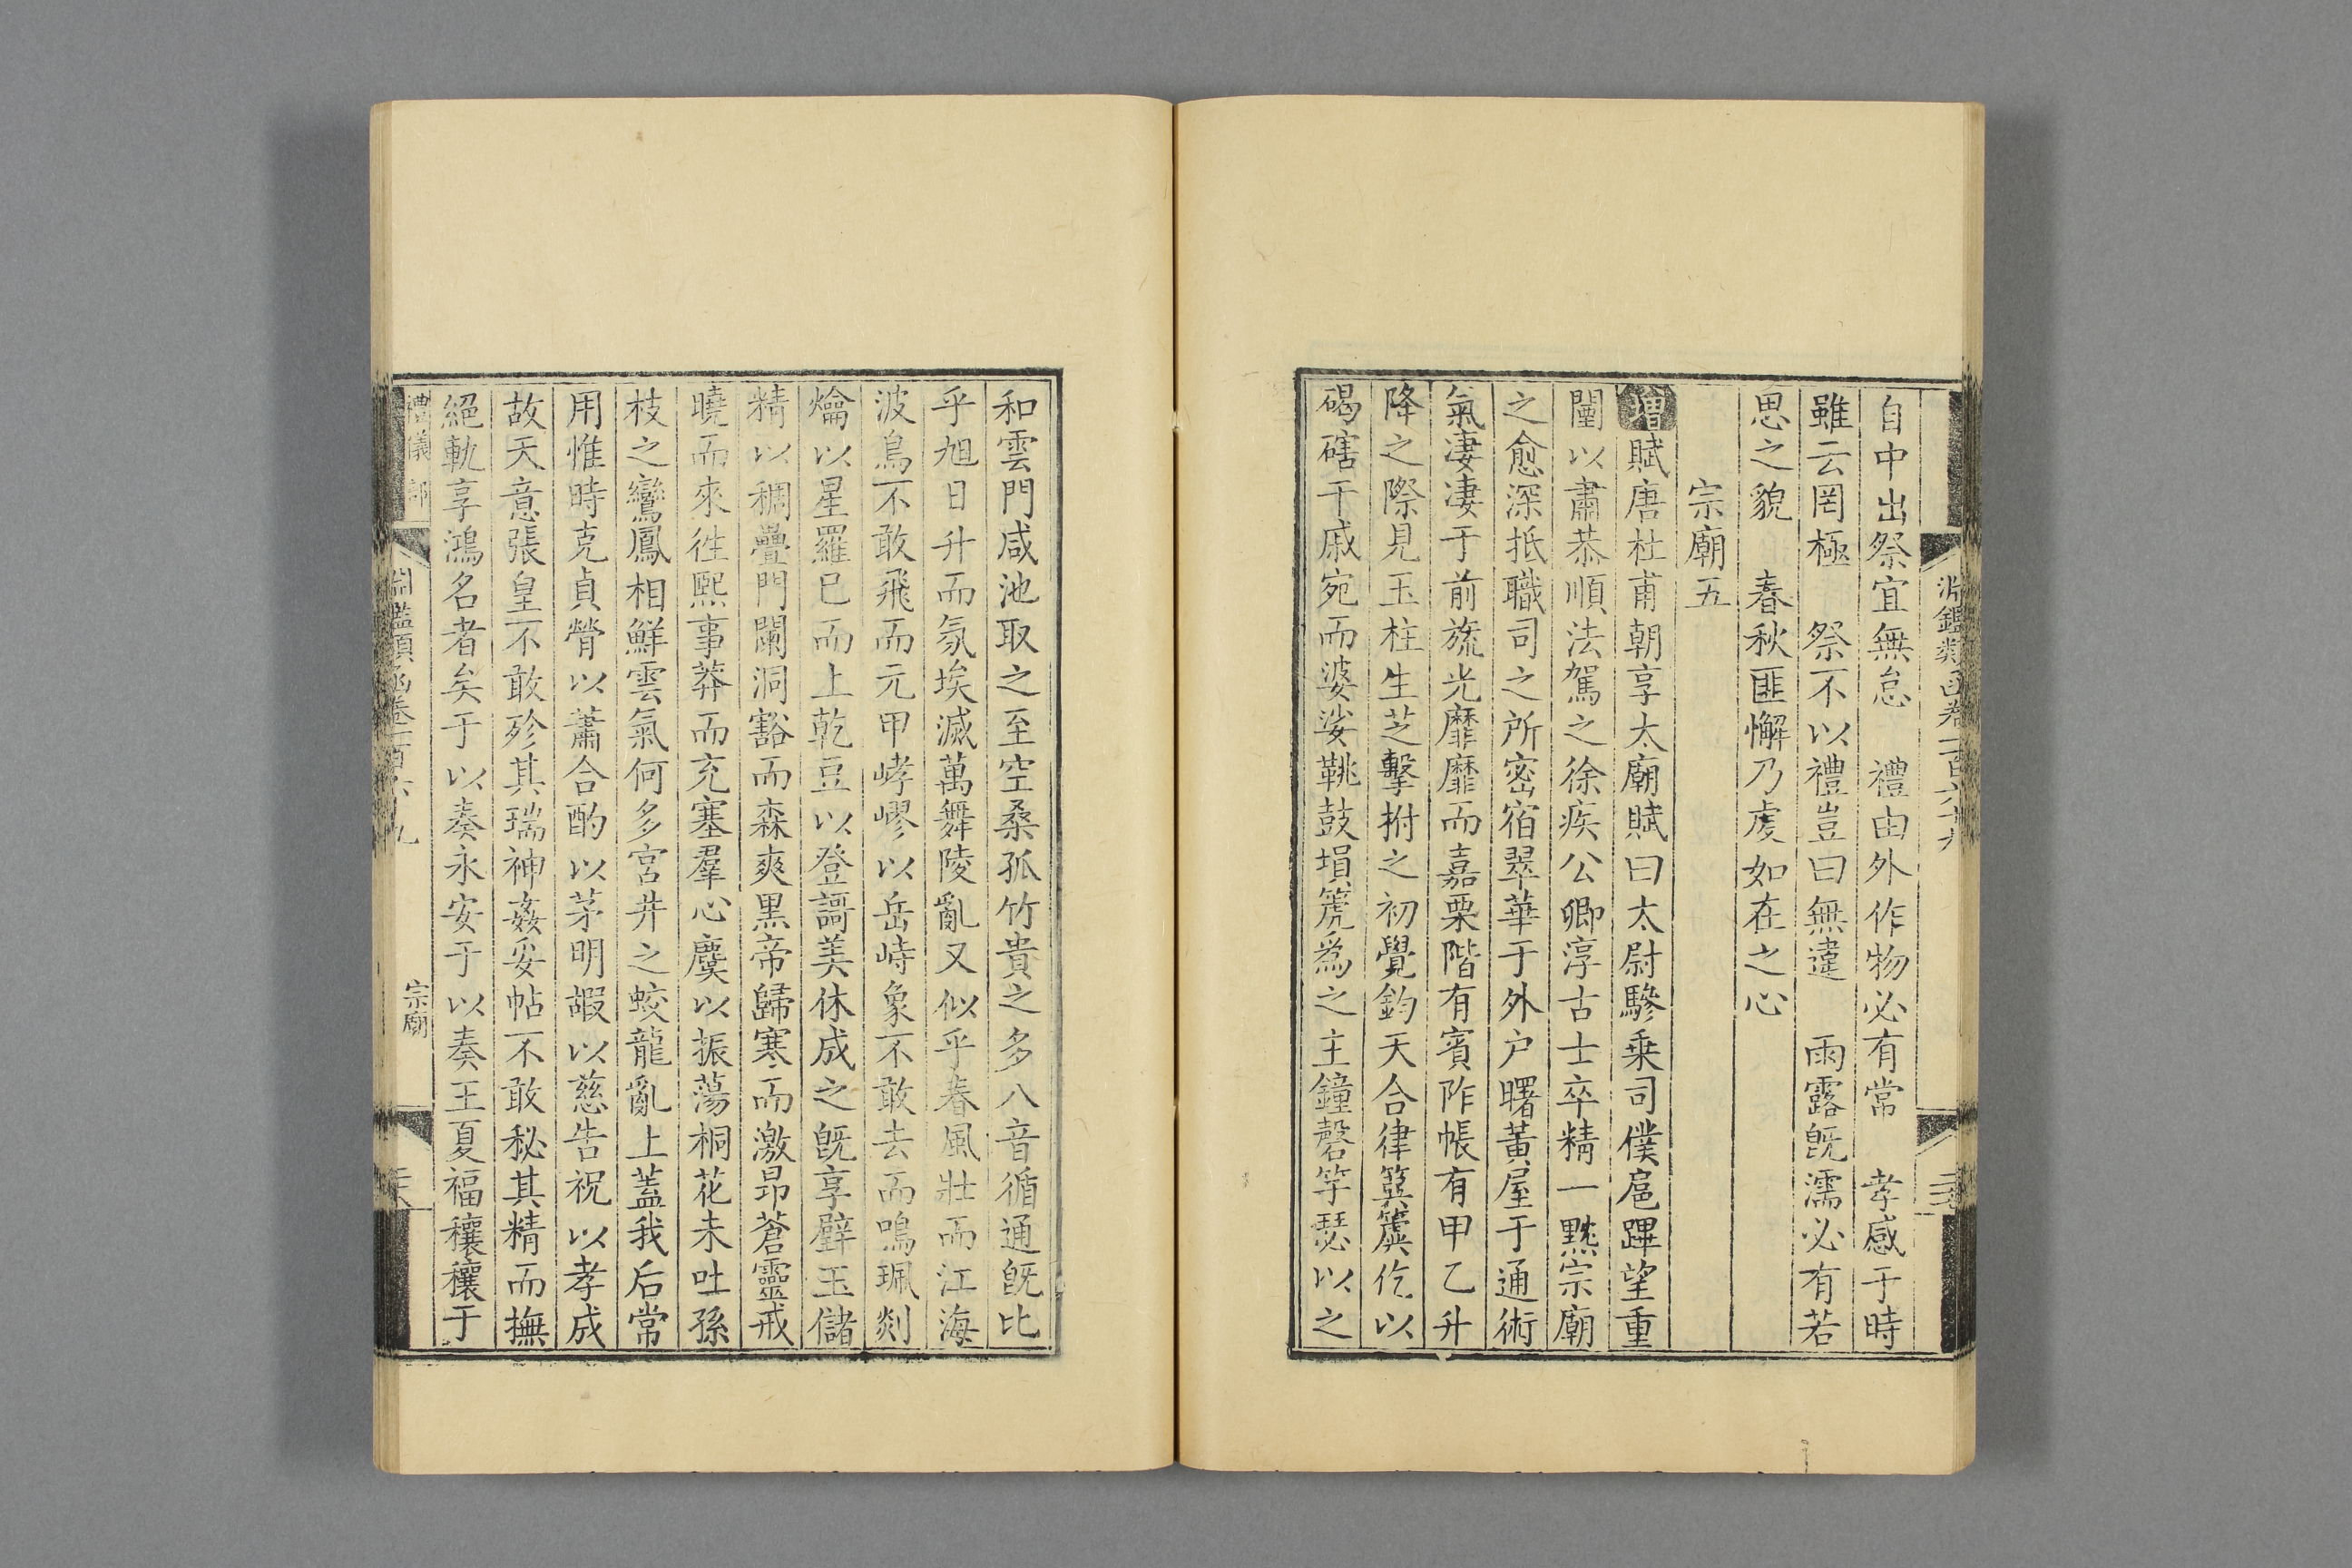 自中出祭宜無怠　禮由外作物必有常　孝感于時
雖云罔極　祭不以禮豈曰無違　雨露旣濡必有若
思之貌　春秋匪懈乃虔如在之心
宗廟五
增賦唐杜甫朝享太廟賦曰太尉驂乗司僕扈蹕望重
闉以肅恭順法駕之徐疾公卿淳古士卒精一黙宗廟
之愈深抵職司之所密宿翠華于外户曙黃屋于通術
氣凄凄于前旒光靡靡而嘉栗階有賓阼帳有甲乙升
降之際見玉柱生芝擊拊之初覺鈞天合律簨簴仡以
碣磍干戚宛而婆娑鞉鼓塤箎爲之主鐘磬竽瑟以之
和雲門咸池取之至空桑孤竹貴之多八音循通旣比
乎旭日升而氛埃滅萬舞陵亂又似乎春風壯而江海
波鳥不敢飛而元甲㟅嵺以岳峙象不敢去而鳴珮剡
爚以星羅已而上乾豆以登謌美休成之旣享璧玉儲
精以稠疊門闌洞豁而森爽黑帝歸寒而激昂蒼靈戒
曉而來徃熙事莽而充塞羣心𪋻以振蕩桐花未吐孫
枝之鸞鳳相鮮雲氣何多宮井之蛟龍亂上蓋我后常
用惟時克貞膋以蕭合酌以茅明嘏以慈告祝以孝成
故天意張皇不敢殄其瑞神姦妥帖不敢秘其精而撫
絕軌享鴻名者矣于以奏永安于以奏王夏福穰穰于
禮儀部
淵鑑類函卷一百六十九
宗廟